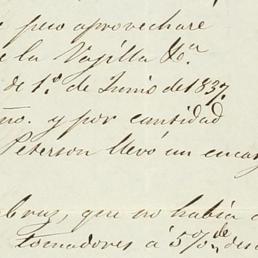 pero aprovechare
e la Vajilla &ª
de 1º de Junio de 1837.
ño. y por cantidad
Peterson llevó un encar
braz, que no había
tomadores á 5% de des